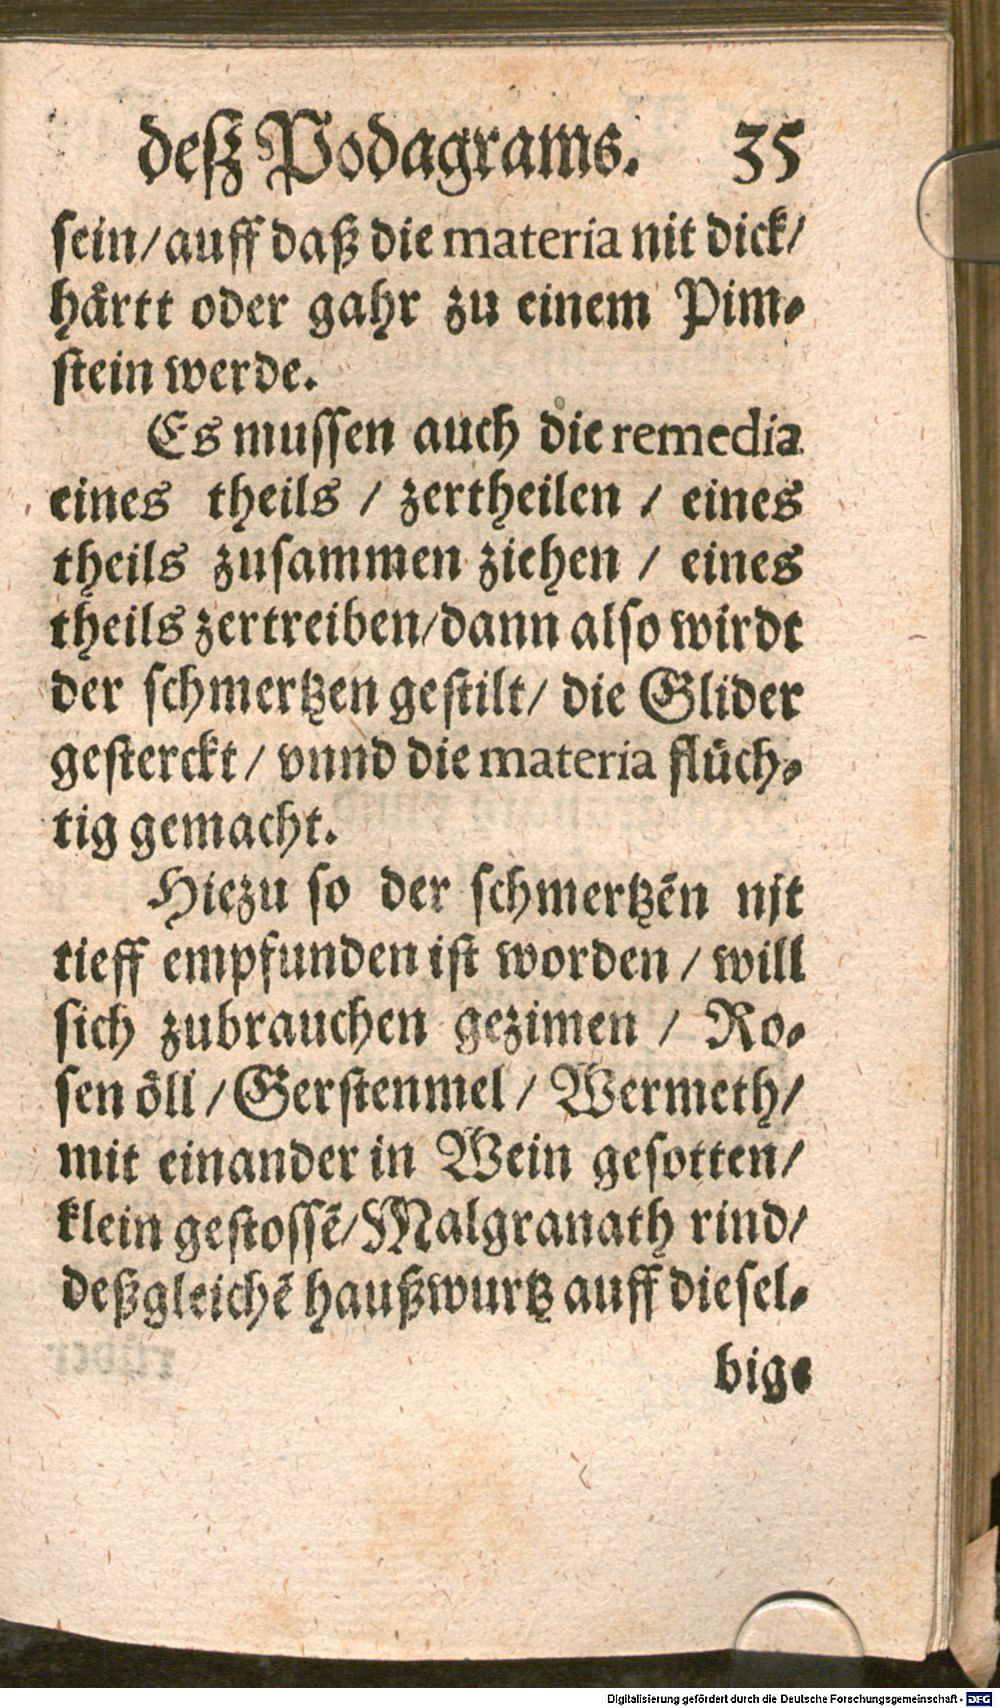 deſz Podagrams. 35
ſein/auff daß die materia nit dick/
haͤrtt oder gahr zu einem Pim-
ſtein werde.
Es muſſen auch die remedia
eines theils / zertheilen / eines
theils zuſammen ziehen / eines
theils zertreiben/dann alſo wirdt
der ſchmertzen geſtilt/ die Glider
geſterckt/ vnnd die materia fluͤch-
tig gemacht.
Hiezu ſo der ſchmertzẽn njt
tieff empfunden iſt worden / will
ſich zubrauchen gezimen / Ro-
ſen oͤll/Gerſtenmel/ Wermeth/
mit einander in Wein geſotten/
klein geſtoſſẽ/Malgranath rind/
deßgleichẽ haußwurtz auff dieſel-
big-
Digitalisierung gefördert durch die Deutsche Forschungsgemeinschaft - DFG